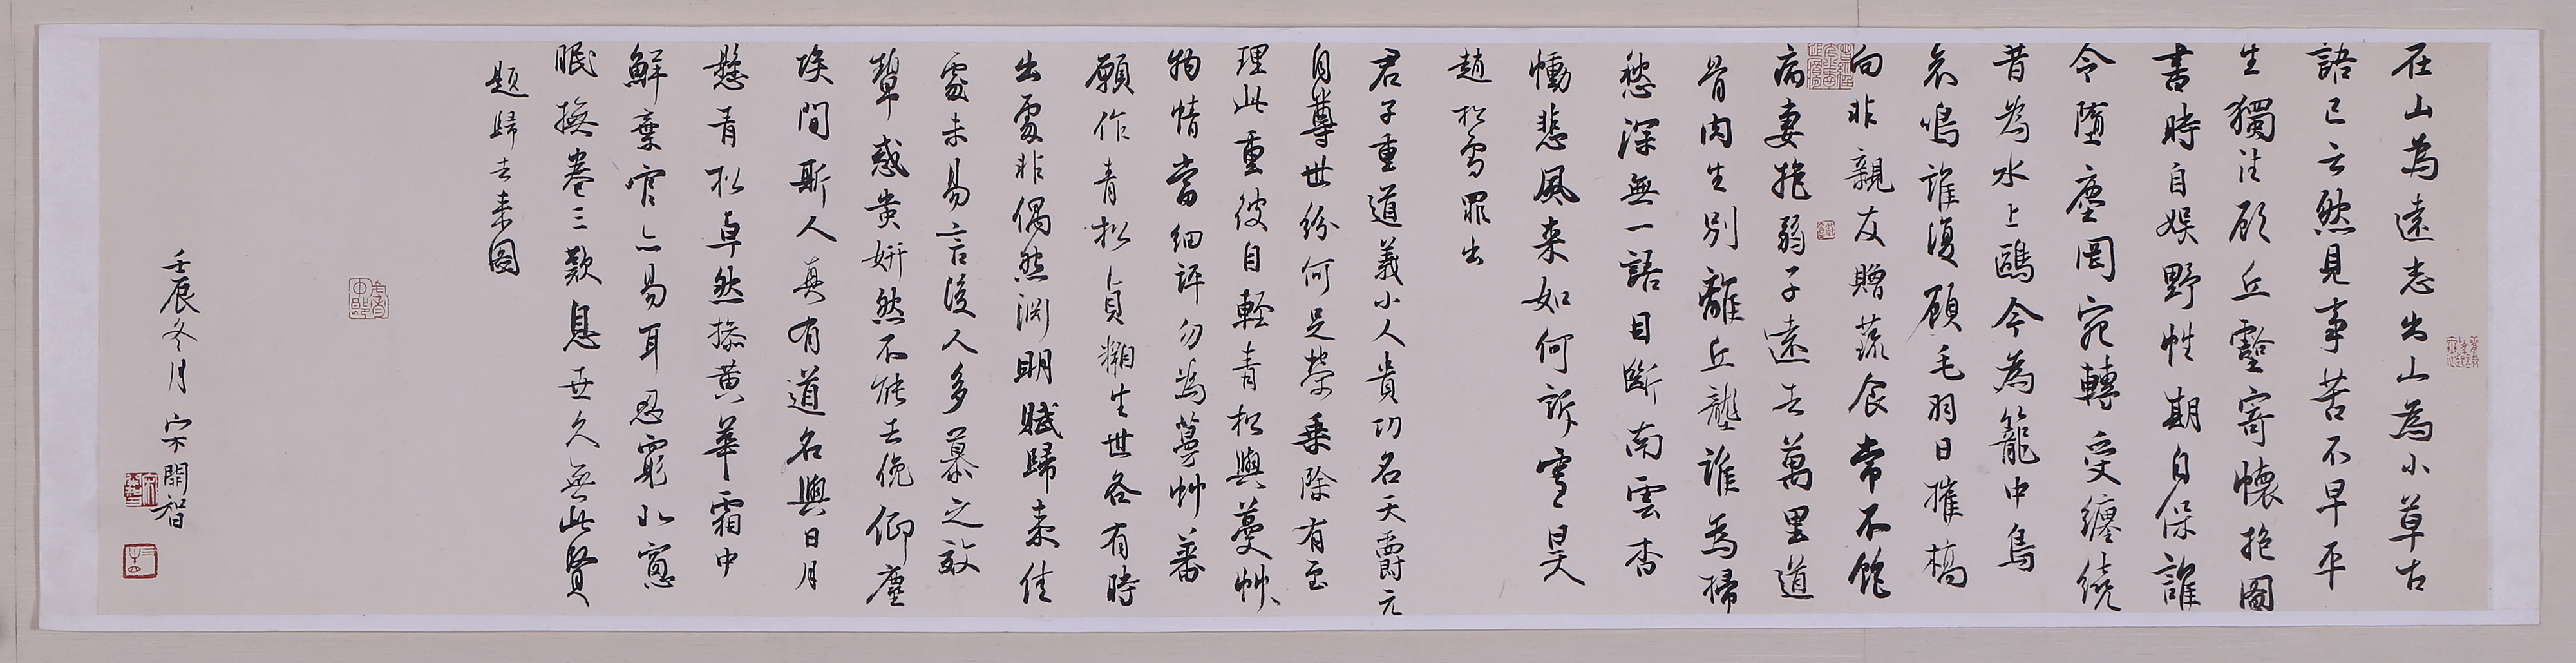 在山為遠志出山為小草古
語已云然見事苦不早平
生獨往願丘壑寄懷抱圖
書時自娛野性期自保誰
令墮塵罔宛轉受纏繞
昔為水上鷗今為籠中鳥
哀鳴誰復顧毛羽日摧槁
向非親友贈蔬食常不飽
病妻抱弱子遠去萬里道
骨肉生別離丘壟誰為掃
愁深無一語目斷南雲杳
慟悲風來如何訴雲旻
趙松雪罪出
君子重道義小人貴功名天爵元
自尊世紛何足榮乘除有至
理此重彼自輕青松與蔓艸
物情當細評勿為蔓艸蕃
願作青松貞糊生世各有時
出處非偶然淵明賦歸來佳
處未易言後人多慕之效
顰惑蚩妍然不能去俛仰塵
埃間斯人真有道名與日月
懸青松卓然操黃華霜中
鮮棄官亦易耳忍窮北窗
眠撫卷三歎息世久無此賢
題歸去來圖
壬辰冬月宋開智